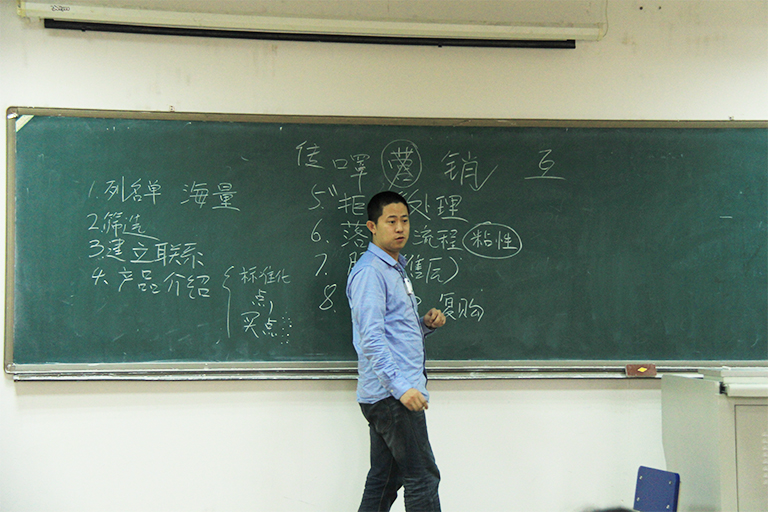 佳 口罩 销 互
1.列名单 海量
2.筛选
3.建立联系
4.产品介绍 标准化
点
买点
5."拒 处理
6.落 流程 粘性
7.服 (售后)
8. 复购